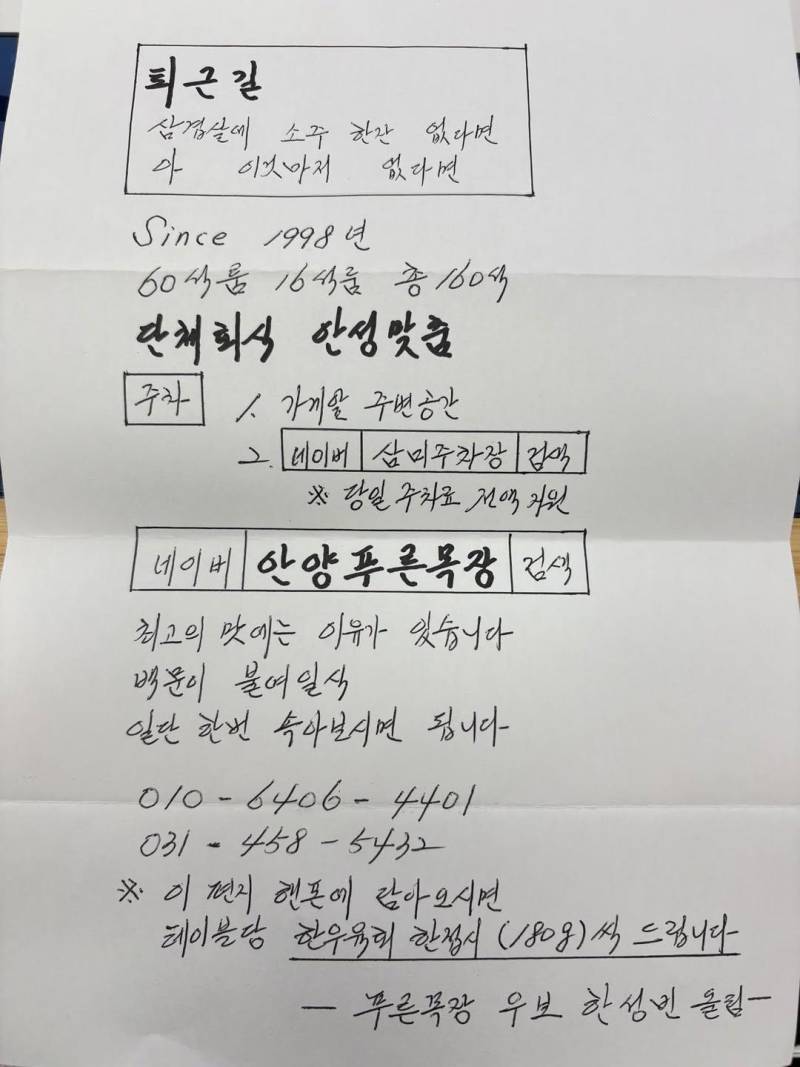 퇴근길
삼겹살에 소주 한잔 없다면
아 이것마저 없다면
Since 1998년
60석룸 16석룸 총 160석
단체회식 안성맞춤
주차 1. 가게앞 주변공간
2. 네이버 삼미주차장 검색
※ 당일 주차료 전액 지원
네이버 안양푸른목장 검색
최고의 맛에는 이유가 있습니다
백문이 불여일식
일단 한번 속아보시면 됩니다
010-6406-4401
031-458-5432
※ 이 편지 핸폰에 담아오시면
테이블당 한우육회 한접시 (180g)씩 드립니다
- 푸른목장 우보 한성빈 올림-